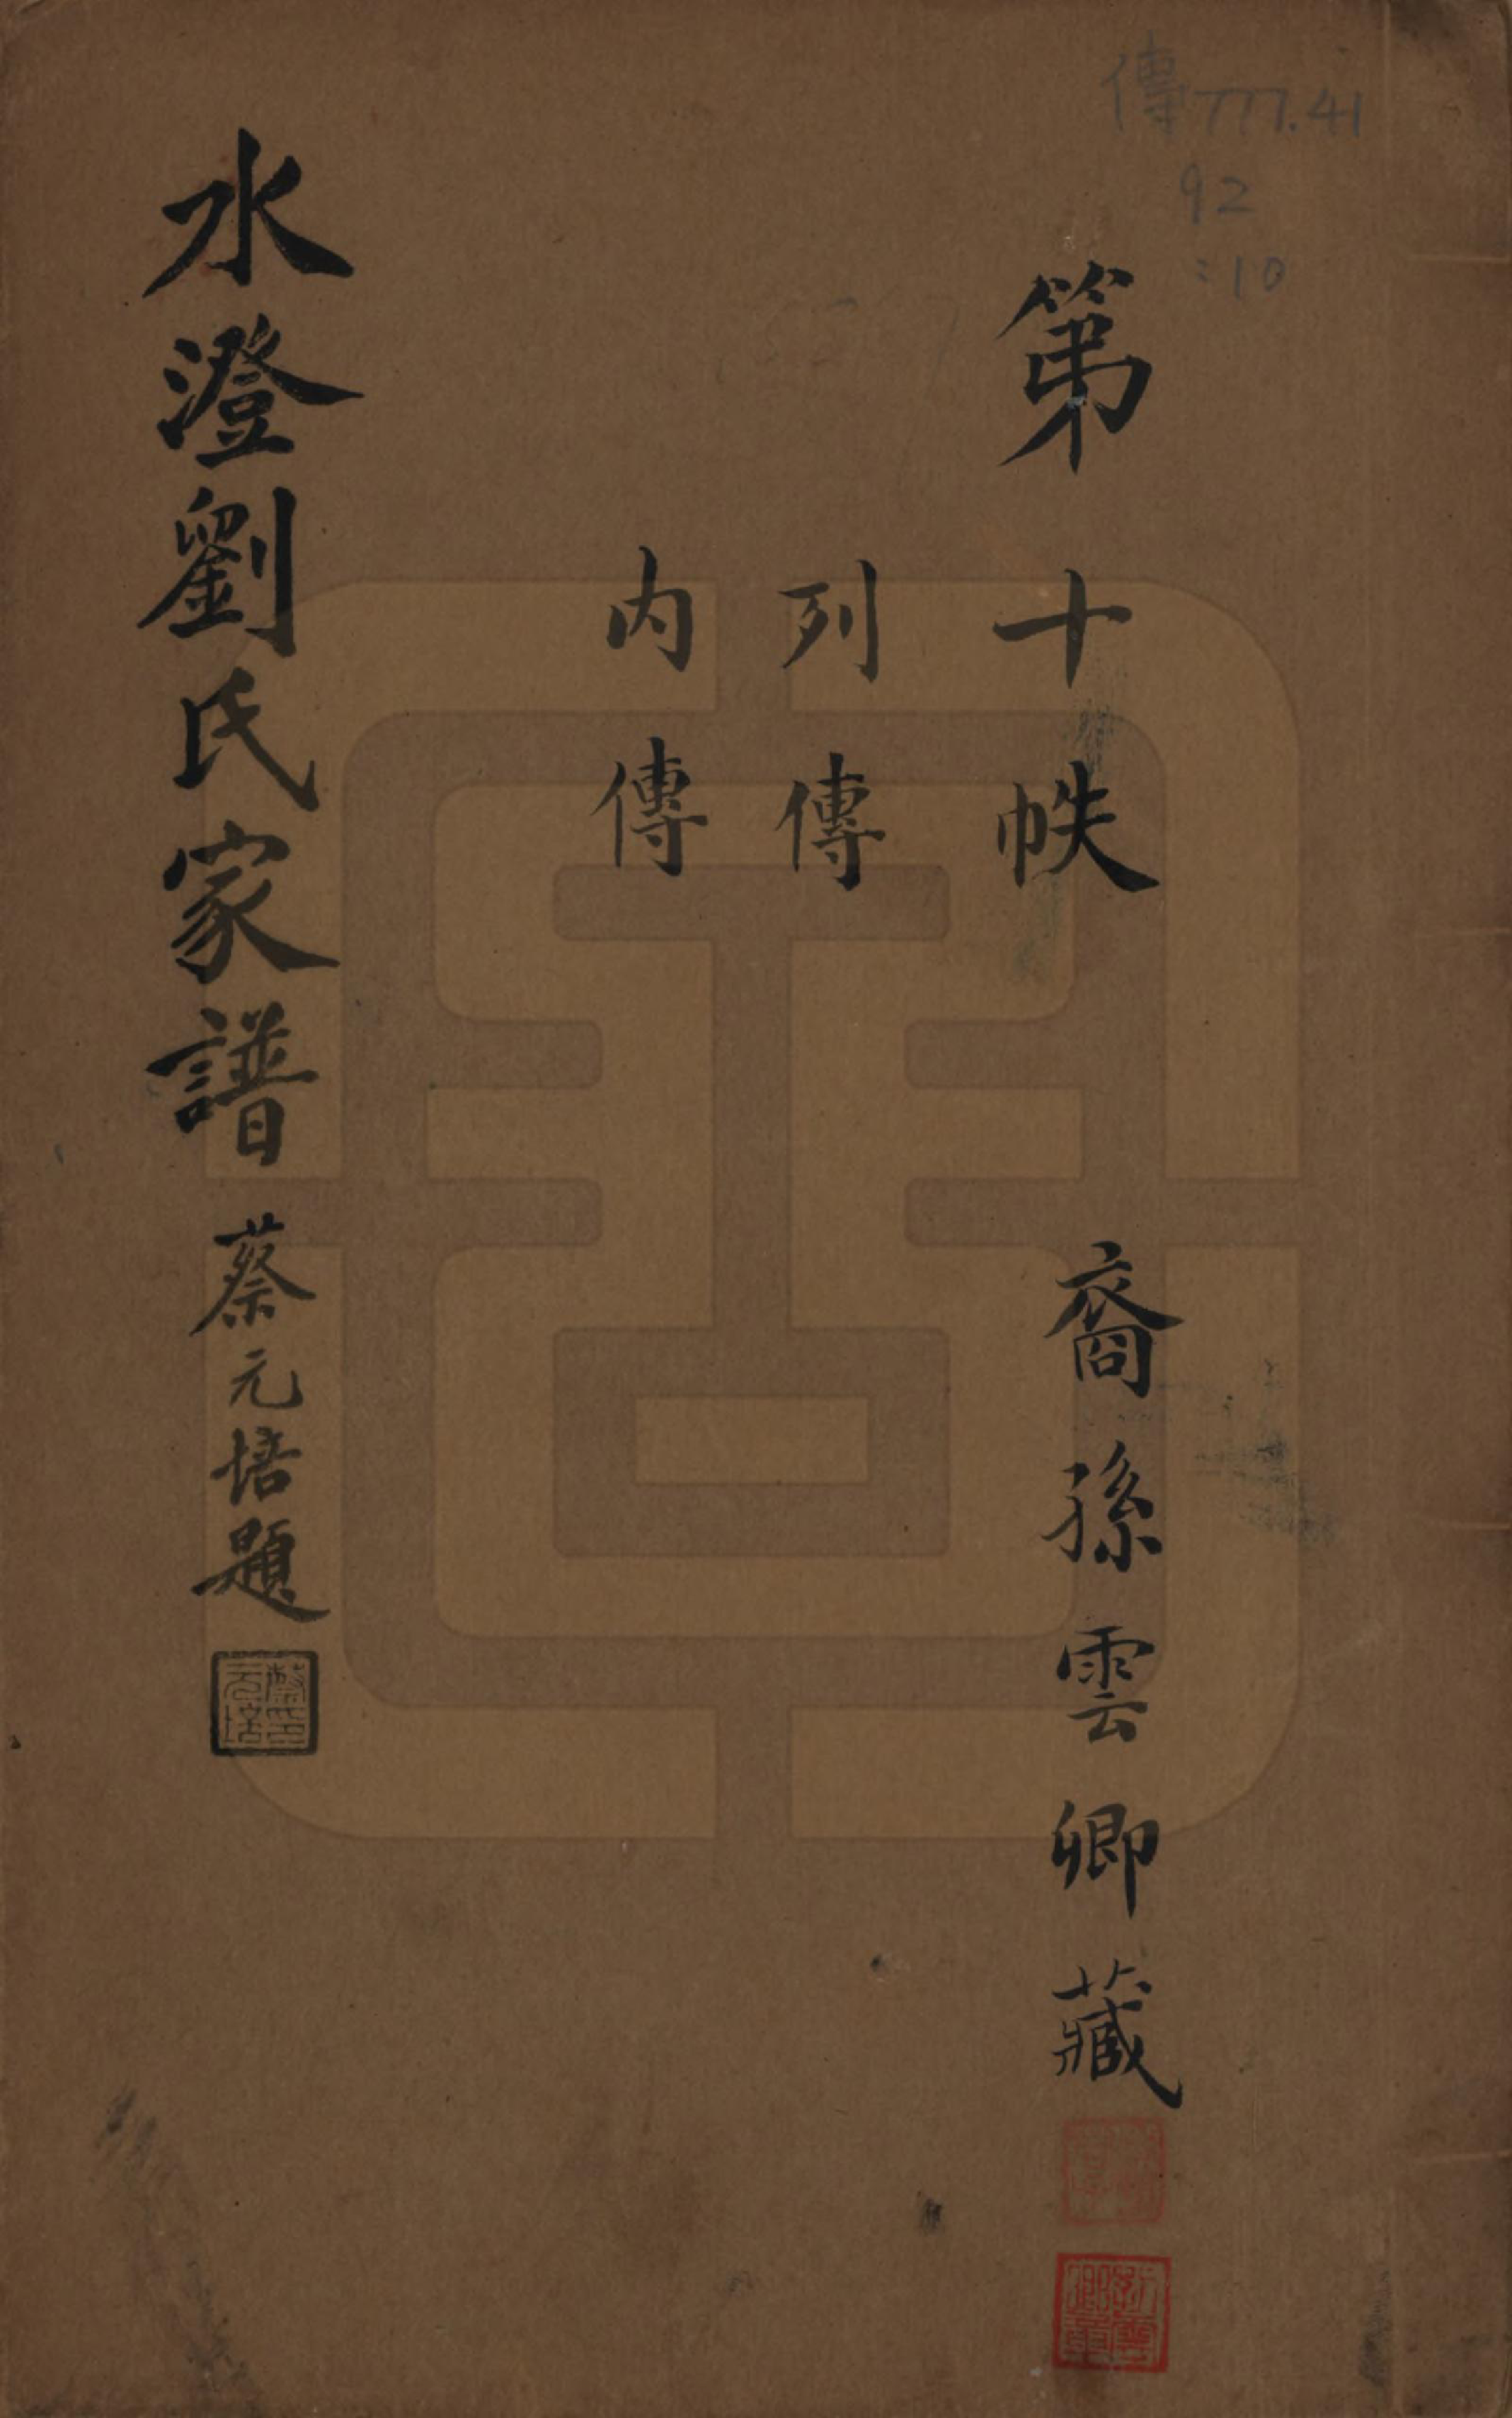 傳777.41
92
:10
第十帙
裔孫雲卿藏
列傳
内傳
水澄劉氏家譜
蔡元培題